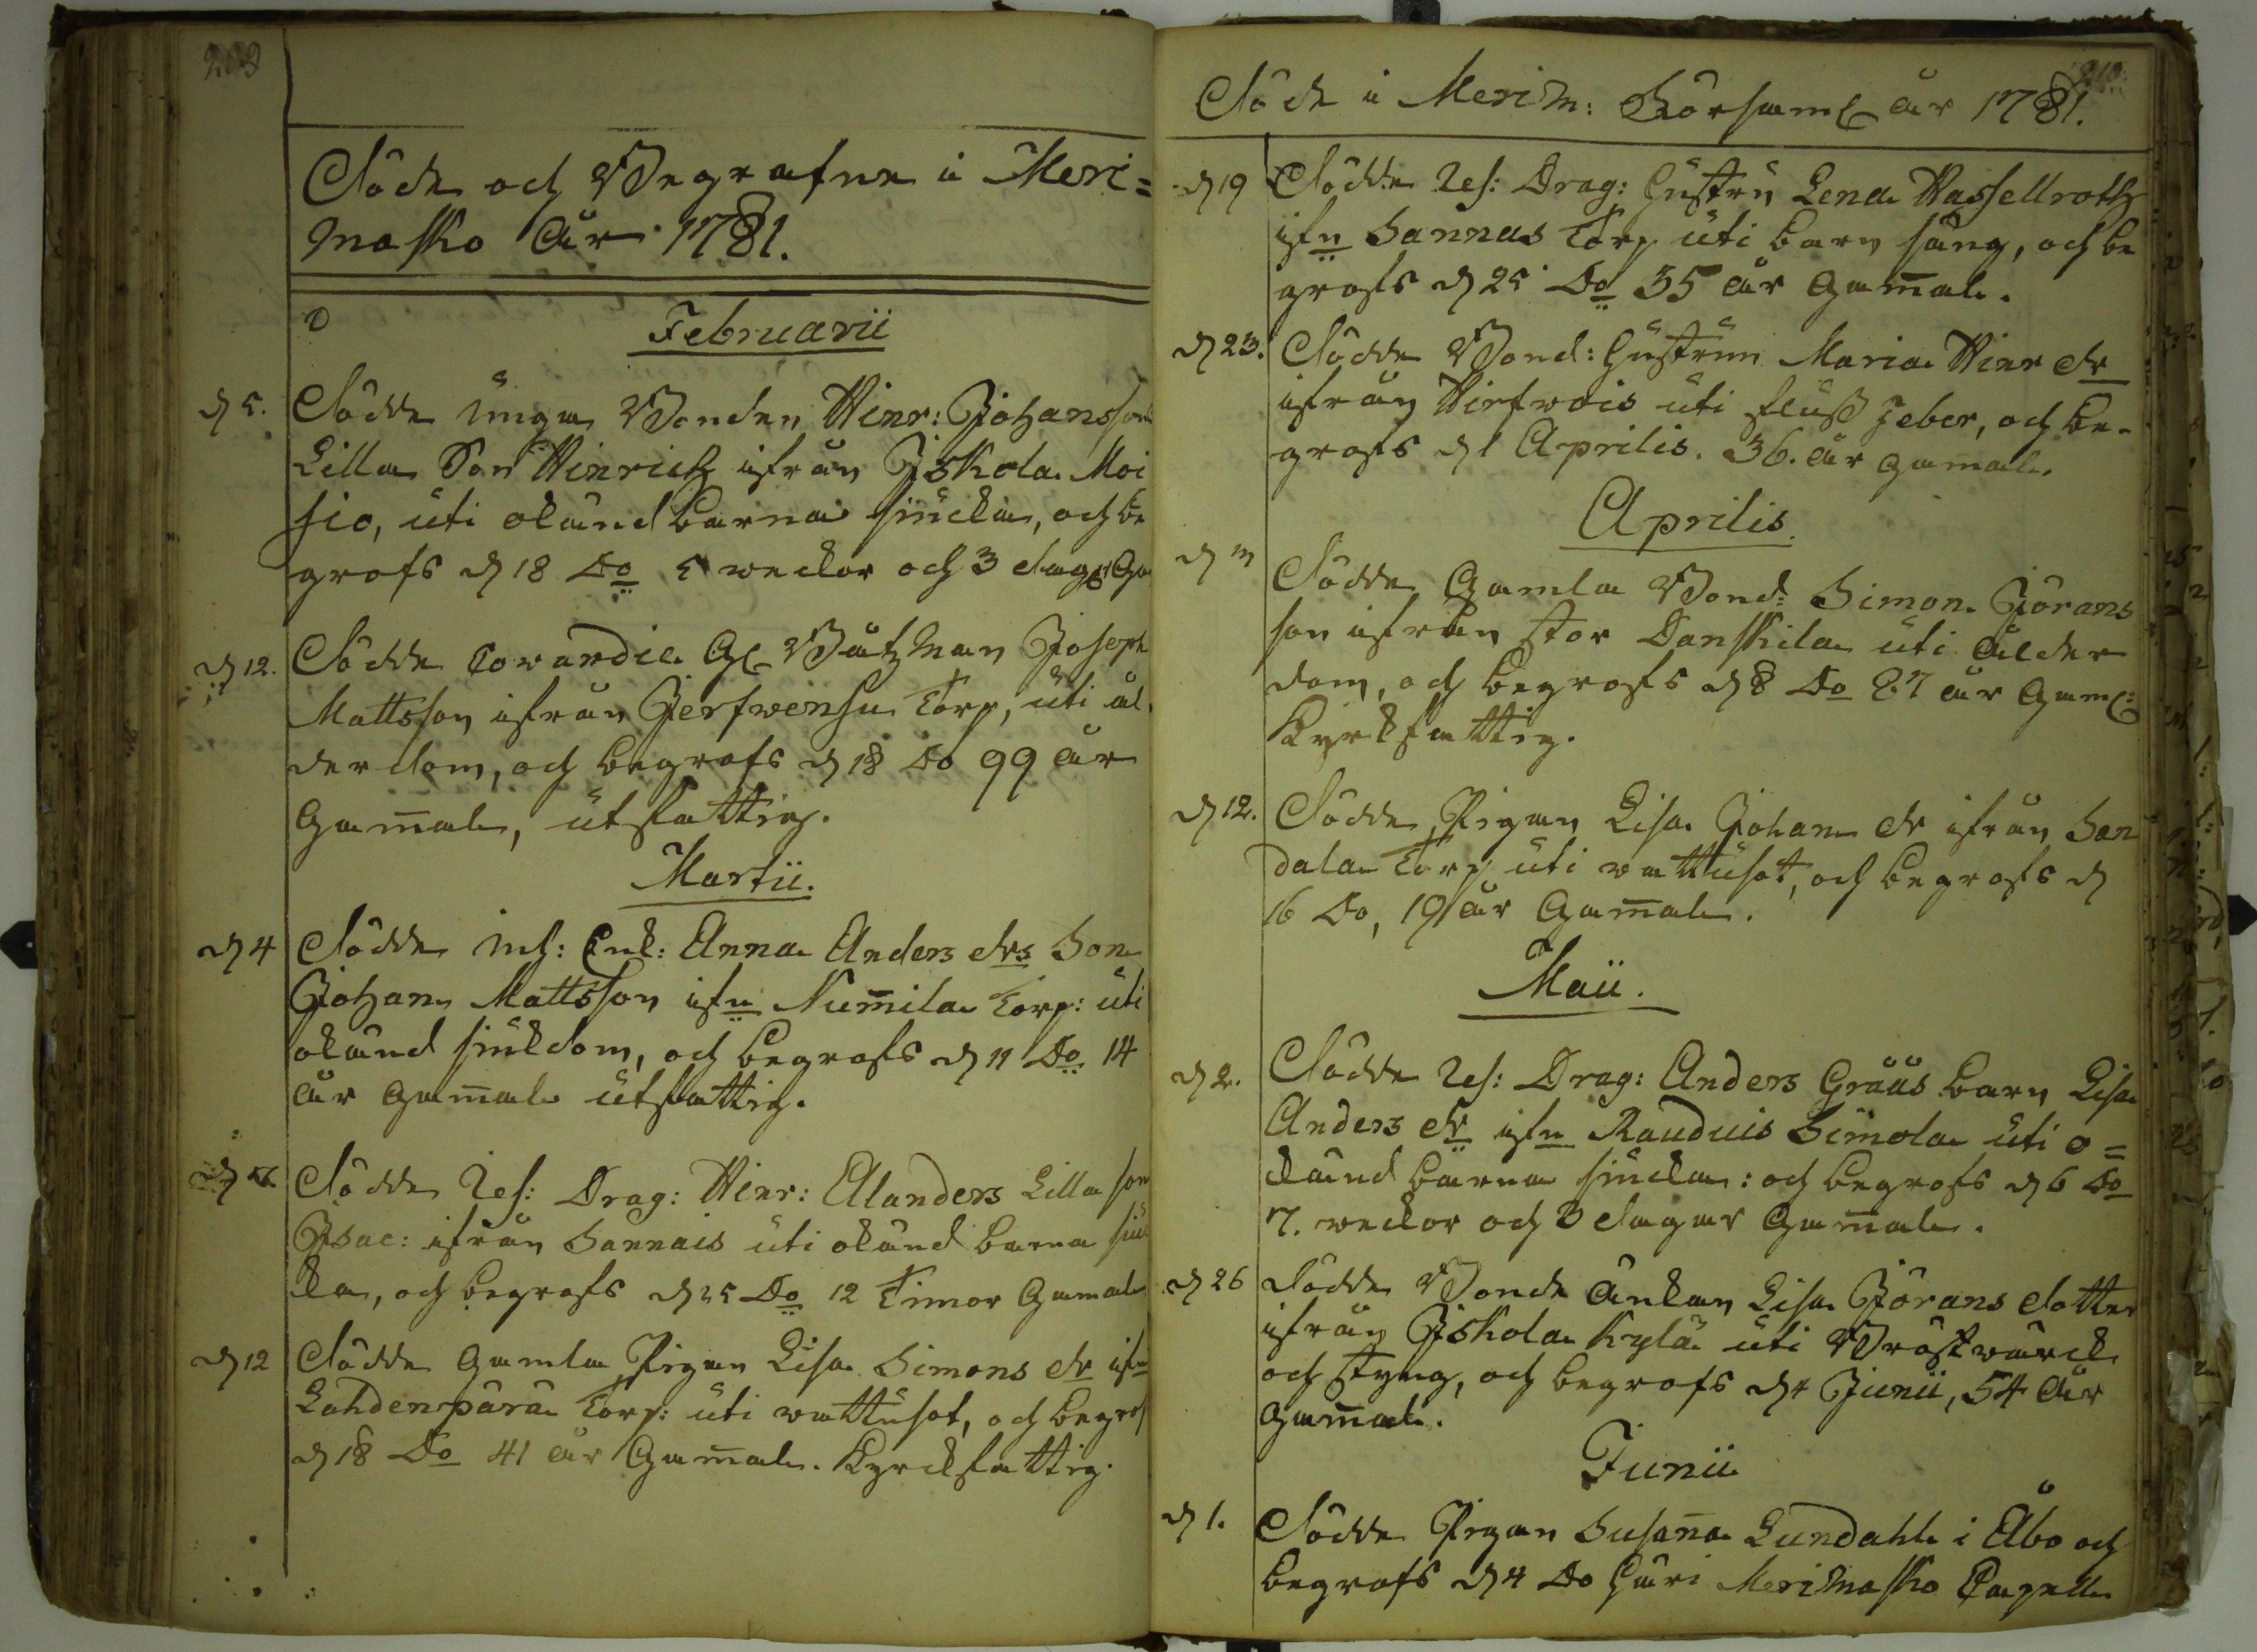 209
Döde och Begrafne i Meri=
Masko År 1781.
Februarii
d 5. Dödde unga Bonden Hinr: Johanssons
Lilla Son Hinrich ifrån Jskola Moi
sio, uti okänd barna siucka, och be
grofs d 18 Do 5 weckor och 3 dagr Ga
d 12. Dödde Gl Båtzman Joseph
Mattsson ifrån Jerfwensu Torp, uti ål
derdom, och begrofs d 18 Do 99 år
Gam̄al, utfattig.
Martii.
d 4 Dödde Inh: Enk: Anna Anders drs Son
Johan Mattsson ifn Num̄ila Torp: uti
okänd siukdom, och begrofs d 11 Do 14
år gam̄al utfattig.
Dödde Res: Drag: Hinr: Alanders Lilla son
Jsac: ifrån Sannais uti okänd barna siuk
ka, och begrofs d 25 Do 12 Timor Gamal
d 12 Dödde Gamla Pigan Lisa Simons dr ifn
Lahdenpärä Torp: uti wattusot, och begrof
d 18 Do 41 år Gam̄al. Kyrckfattig.
210.
Döde i MeriM: Församl år 1781.
d 19 Dödde Res: Drag: hustru Lena Hassellroth
ifn Sannas Torp uti barn säng, och be
grofs d 25 Do 35 år Gam̄al.
d 23. Dödde Bond: hustrun Maria Hinr dr
ifrån Hirfwois uti fluss feber, och be-
grofs d 1 Aprilis. 36. år gamal.
Aprilis.
Dödde Gamla Bond: Simon Jörans
son ifrån stor Danskila uti ålder
dom, och begrofs d 8 Do 87 år Gaml:
Kyrkfattig.
d 12. Dödde Pigan Lisa Johan dr ifrån San
dala Torp uti wattusot, och begrofs d
16 Do, 19 år Gam̄al.
Maii.
d 2. Dödde Res: Drag: Anders Gråås barn Lisa
Anders dr ifn Rauduis Simola uti o=
känd barna siucka: och begrofs d 6 Do
7. weckor och 3 dagar Gam̄al.
d 26 Dödde Bonde Änkan Lisa Jörans dotter
ifrån Jskola Kylä uti Bröstwärck
och styng, och begrofs d 4 Junii, 54 år
gam̄al.
Junii
d 1. Dödde Pigan Susan̄a Lundahl i Åbo och
begrofs d 4 Do här i MeriMasko Capell